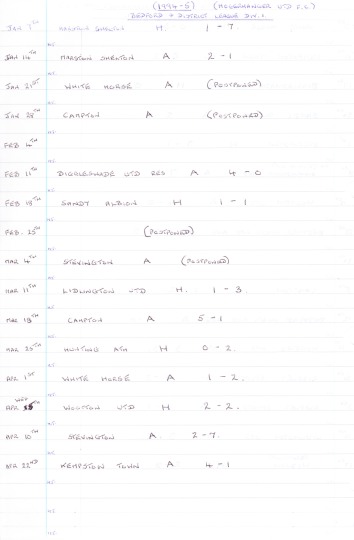 (1994-5) (MEPPERSHALL UTD F.C.)
BEDFORD & DISTRICT LEAGUE DIV. 2
JAN 7TH MARSTON SHELTON H 1 - 7
JAN 14TH MARSTON SHELTON A 2 - 1
JAN 21ST WHITE HORSE A (POSTPONED)
JAN 28TH CAMPTON A (POSTPONED)
FEB 4TH
FEB 11TH BIGGLESWADE UTD RES A 4 - 0
FEB 18TH SANDY ALBION H 1 - 1
FEB. 25TH (POSTPONED)
MAR 4TH STEVINGTON A (POSTPONED)
MAR 11TH LIDLINGTON UTD H. 1 - 3.
MAR 18TH CAMPTON A 5 - 1
MAR 25TH HUNTING ATH H 0 - 2.
APR 1ST WHITE HORSE A 1 - 2.
WED
APR TH WOOTTON UTD H 2 - 2.
APR 10TH STEVINGTON A. 2 - 7.
APR 22ND KEMPSTON TOWN A 4 - 1